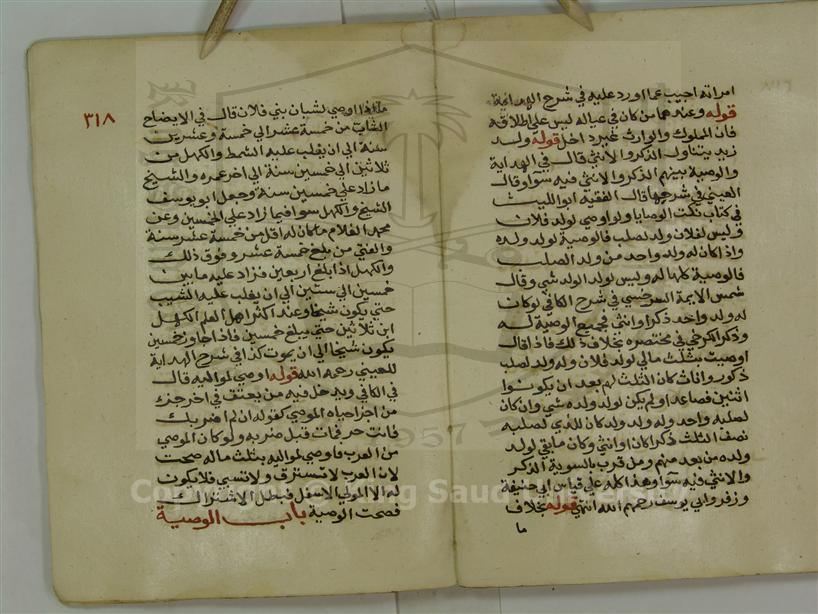 امراته اجيب عما اورد عليه في شرح الهداية
قوله وعندهما من كان في عياله ليس علي اطلاقه
فان المملوك والوارث غير داخل قوله ولد
زيد يتناول الذكر والانثي قال في الهداية
والوصية بينهم الذكر والانثي فيه سوآ وقال
العيني في شرحها قال الفقيه ابو الليث
في كتاب نكت الوصايا ولو اوصي لولد فلان
وليس لفلان ولد لصلب فالوصية لولد ولده
واذا كان له ولد واحد من ولد الصلب
فالوصية كلها له وليس لولد الولد شي وقال
شمس الايمة السرخسي في شرح الكافي لو كان
له ولد واحد ذكرا وانثي فجميع الوصية له
وذكر الكرخي في مختصره بخلاف ذلك فاذا قال
اوصيت بثلث مالي لولد فلان وله ولد لصلبه
ذكور واناث كان الثلث لهم بعد ان يكونوا
اثنين فصاعدا ولم يكن لولد ولده شي وان كان
لصلبه واحد وله ولد ولد كان للذي لصلبه
نصف الثلث ذكرا كان او انثي وكان ما بقي لولد
ولده من بعد منهم ومن قرب بالسوية الذكر
والانثي فيه سوآ وهذا كله علي قياس ابي حنيفة
وزفر وابي يوسف رحمهم الله انتهي قوله بخلاف
ما
٣١٨
ما اذا اوصي لشبان بني فلان قال في الايضاح
الشاب من خمسة عشر الي خمسة وعشرين
سنة الي ان يغلب عليه الشمط والكهل من
ثلاثين الي خمسين سنة الي اخر عمره والشيخ
ما زاد علي خمسين سنة وجعل ابو يوسف
الشيخ والكهل سوا فيما زاد علي الخمسين وعن
محمد الغلام ما كان له اقل من خمسة عشر سنة
والفتي من بلغ خمسة عشر وفوق ذلك
والكهل اذا بلغ اربعين فزاد عليه ما بين
خمسين الي ستين الي ان يغلب عليه الشيب
حتي يكون شيخا وعند اكثر اهل العلم الكهل
ابن ثلاثين حتي يبلغ خمسين فاذا جاوز خمسين
يكون شيخا الي ان يموت كذا في شرح الهداية
للعيني رحمه الله قوله اوصي لمواليه قال
في الكافي ويدخل فيه من يعتق في اخر جزء
من اجزا حياه الموصي كقوله ان لم اضربك
فانت حر فمات قبل ضربه ولو كان الموصي
من العرب فاوصي لمواليه بثلث ماله صحت
لان العرب لا تسترق ولا تسبي فلا يكون
له الا المولي الاسفل فبطل الاشتراك
فصحت الوصية باب الوصية
Copyright © King Saud University
1957